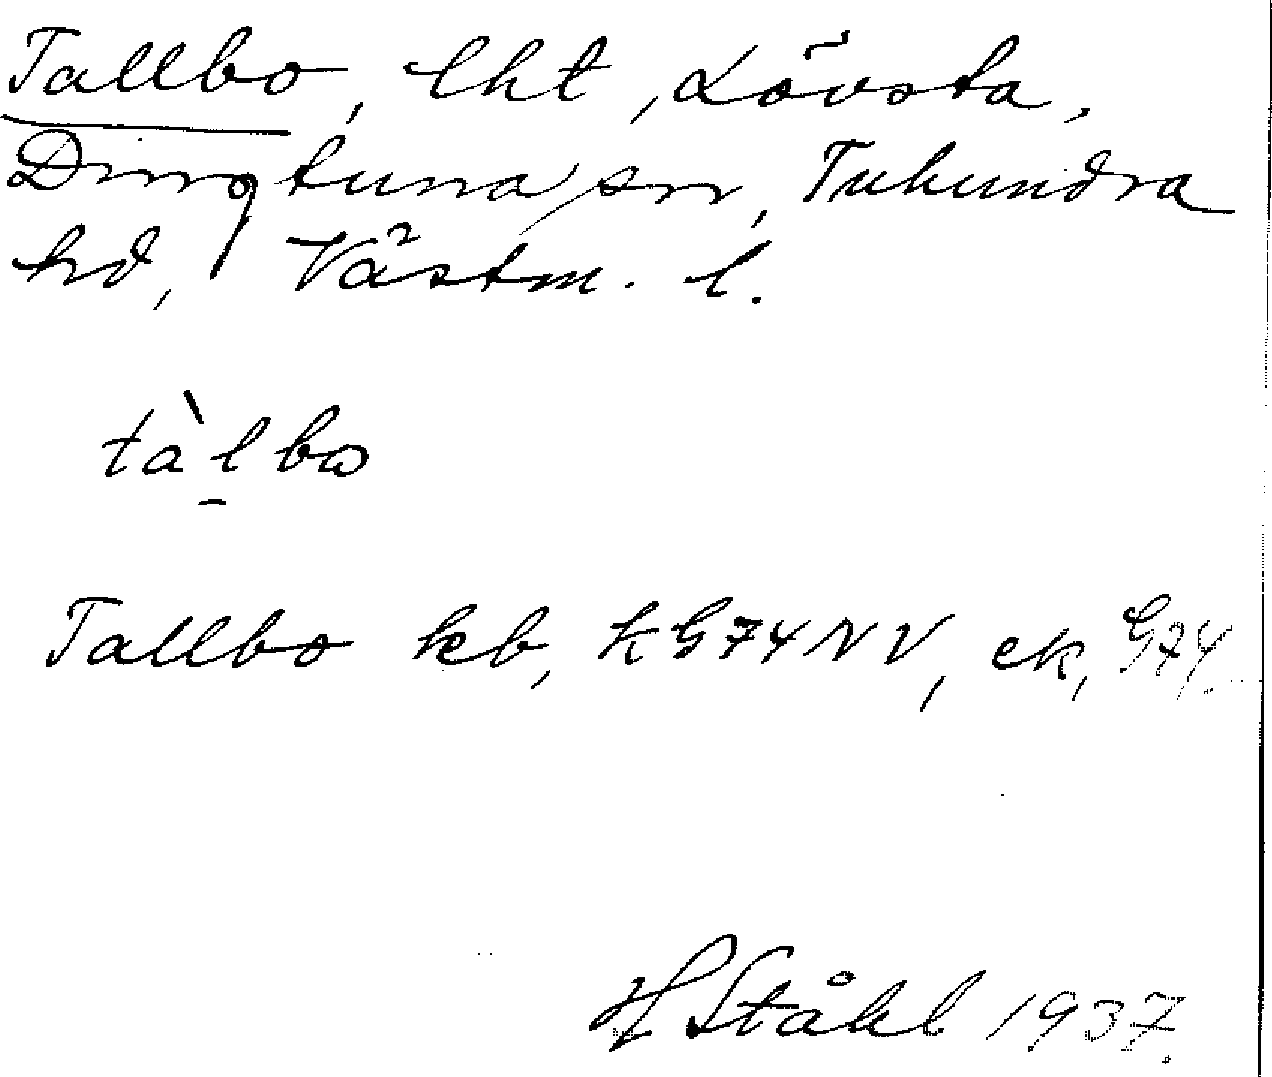 Tallbo, lht, Lövsta,
Dingtuna sn, Tuhundra
hd, Västm. l.
tàl̠bω
Tallbo kb, kG74NV, ek, G74.
H Ståhl 1937.